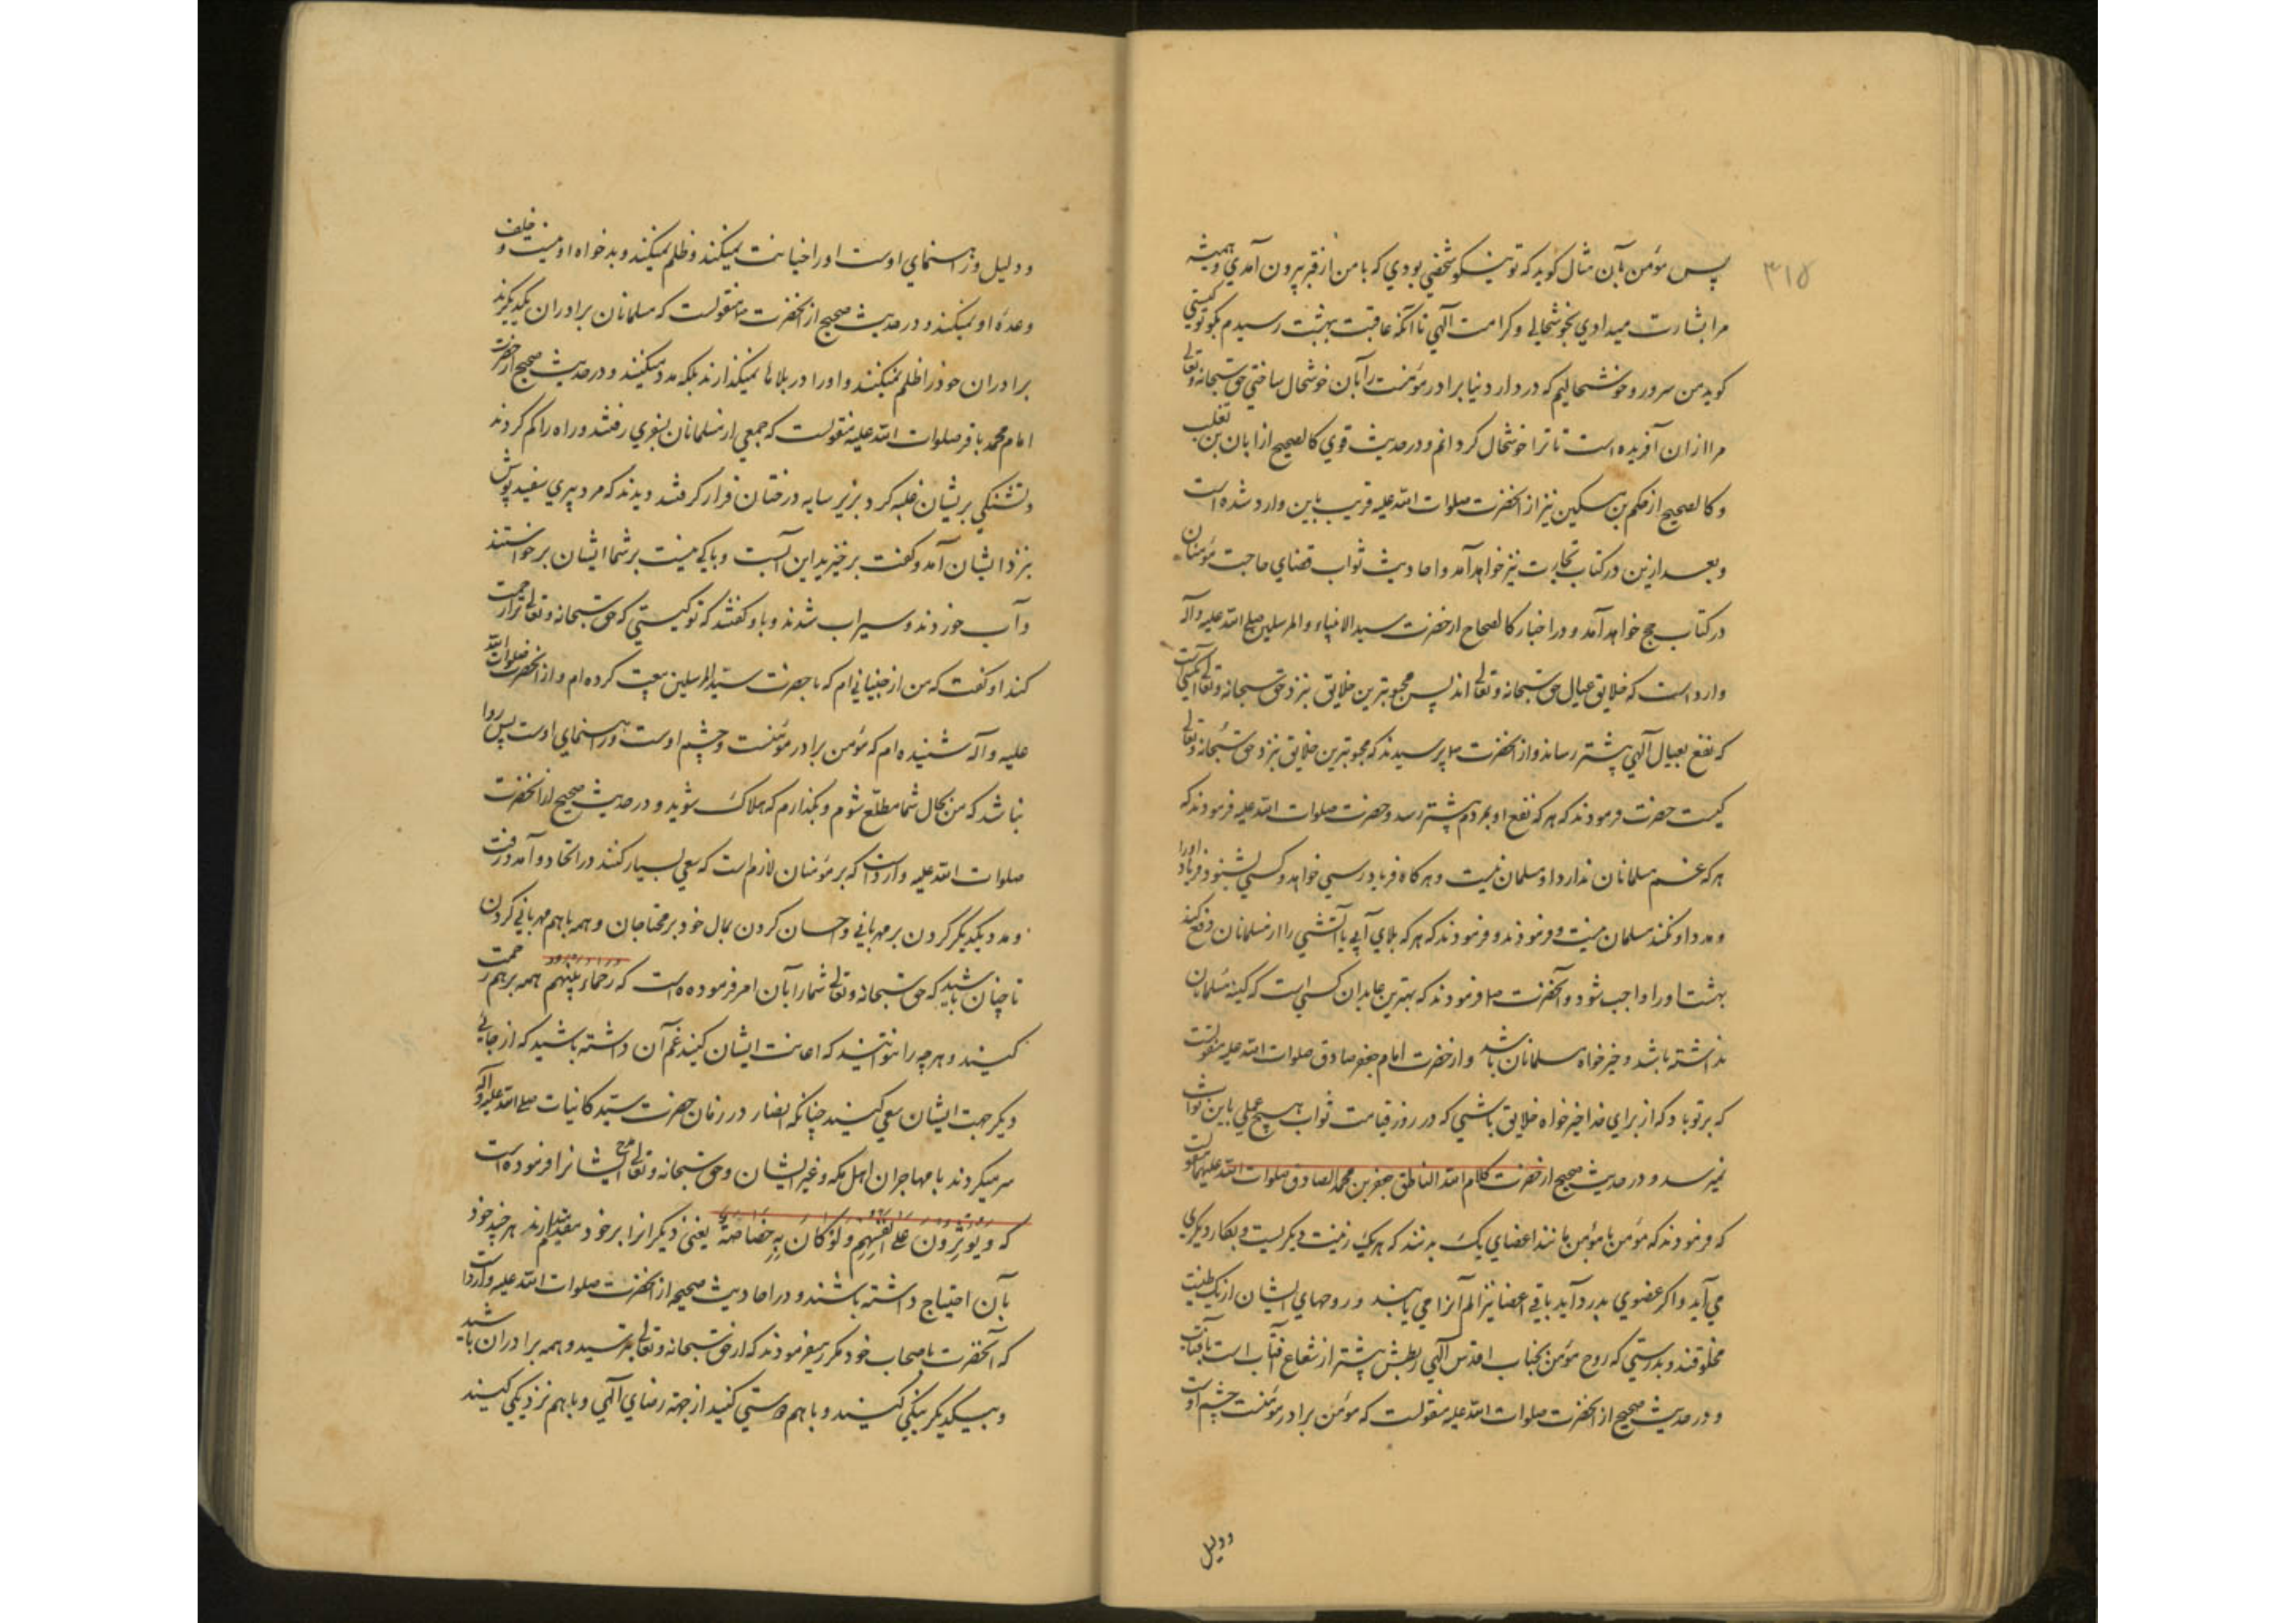 ۳۱۵
پس مؤمن بآن مثال کوید که تو نیکو شخصی بودی که با من از قبر بیرون آمدی و همیشه
مرا بشارت میدادی بخوشحالی و کرامت آلهی تا آنکه عاقبت بهشت رسیدم بکو تو کیستی
کوید من سرور و خوشحالیم که در دار دنیا برادر مؤمنت را بآن خوشحال ساختی حق سبحانه و تعالی
مرا ازان آفریده است تا ترا خوشحال کردانم و در حدیث قوی کالصحیح از ابان بن تغلب
و کالصحیح از حکم بن مسکین نیز از آنحضرت صلوات الله علیه قریب باین وارد شده است
و بعد ازین در کتاب تجارت نیز خواهد آمد و احادیث ثواب قضای حاجت مؤمنان
در کتاب حج خواهد آمد و در اخبار کالصحاح از حضرت سید الانبیاء و المرسلین صلی الله علیه و آله
وارد است که خلایق عیال حق سبحانه و تعالی اند پس محبوبترین خلایق نزد حق سبحانه و تعالی کسی است
که نفع بعیال آلهی بیشتر رساند و از آنحضرت ص پرسیدند که محبوبترین خلایق نزد حق سبحانه و تعالی
کیست حضرت فرمودند که هر که نفع او بمردم بیشتر رسد و حضرت صلوات الله علیه فرمودند که
هر که غم مسلمانان ندارد او مسلمان نیست و هر کاه فریادرسی خواهد و کسی بشنود و فریاد او را
و مدد او نکند مسلمان نیست و فرمودند و فرمودند که هر که بلای آبی یا آتشی را از مسلمانان دفع کند
بهشت او را واجب شود و آنحضرت ص فرمودند که بهترین عابدان کسی است که کینه مسلمانان
نداشته باشد و خیرخواه مسلمانان باشد و از حضرت امام جعفر صادق صلوات الله علیه منقولست
که بر تو باد که از برای خدا خیرخواه خلایق باشی که در روز قیامت ثواب هیچ عملی باین ثواب
نمیرسد و در حدیث صحیح از حضرت کلام الله الناطق جعفر بن محمد الصادق صلوات الله علیهما منقولست
که فرمودند که مؤمن با مؤمن مانند اعضای یک بدنند که هر یک زینت دیکریست و بکار دیکری
می آید و اکر عضوی بدرد آید باقی اعضا نیز الم آنرا می یابند و روحهای ایشان از یک طینت
مخلوقند و بدرستی که روح مؤمن بجناب اقدس آلهی ربطش بیشتر از شعاع آفتاب است بآفتاب
و در حدیث صحیح از آنحضرت صلوات الله علیه منقولست که مؤمن برادر مؤمنست و چشم اوست
و دلیل
و دلیل و رهنمای اوست او را خیانت نمیکند و ظلم نمیکند و بدخواه او نیست و خلف
وعده او نمیکند و در حدیث صحیح از آنحضرت ص منقولست که مسلمانان برادران یکدیکرند
برادران خود را ظلم نمیکنند و او را در بلاها نمیکذارند بلکه مدد میکنند و در حدیث صحیح از حضرت
امام محمد باقر صلوات الله علیه منقولست که جمعی از مسلمانان بسفری رفتند و راه را کم کردند
و تشنکی بریشان غلبه کرد بزیر سایه درختان قرار کرفتند دیدند که مرد پیری سفید پوش
بنزد ایشان آمد و کفت برخیزید این آبست و باکی نیست بر شما ایشان برخواستند
و آب خوردند و سیراب شدند و باو کفتند که تو کیستی که حق سبحانه و تعالی ترا رحمت
کند او کفت که من از جنیانی ام که با حضرت سید المرسلین بیعت کرده ام و از آنحضرت صلوات الله
علیه و آله شنیده ام که مؤمن برادر مؤمنست و چشم اوست و رهنمای اوست پس روا
نباشد که من بحال شما مطلع شوم و بکذارم که هلاک شوید و در حدیث صحیح از آنحضرت
صلوات الله علیه وارد است که بر مؤمنان لازم است که سعی بسیار کنند در اتحاد و آمد و رفت
و مدد یکدیکر کردن بر مهربانی و احسان کردن بمال خود بر محتاجان و همه با هم مهربانی کردن
تا چنان باشید که حق سبحانه و تعالی شما را بآن امر فرموده است که رحماء بینهم همه بر هم رحمت
کنید و هر چه را نتوانید که اعانت ایشان کنید غم آن داشته باشید که از جائی
دیکر جهت ایشان سعی کنید چنانکه انصار در زمان حضرت سید کاینات صلی الله علیه و آله
سر میکردند با مهاجران اهل مکه و غیر ایشان و حق سبحانه و تعالی مدح ایشانرا فرموده است
که وَیُؤْثِرُونَ عَلی اَنْفُسِهِم وَلَوْ کَانَ بِهِم خَصَاصَةٌ یعنی دیکرانرا بر خود مقدم میدارند هر چند خود
بآن احتیاج داشته باشند و در احادیث صحیحه از آنحضرت صلوات الله علیه وارد است
که آنحضرت باصحاب خود مکرر میفرمودند که از حق سبحانه و تعالی بترسید و همه برادران باشید
و بیکدیکر نیکی کنید و با هم دوستی کنید از جهة رضای آلهی و با هم نزدیکی کنید